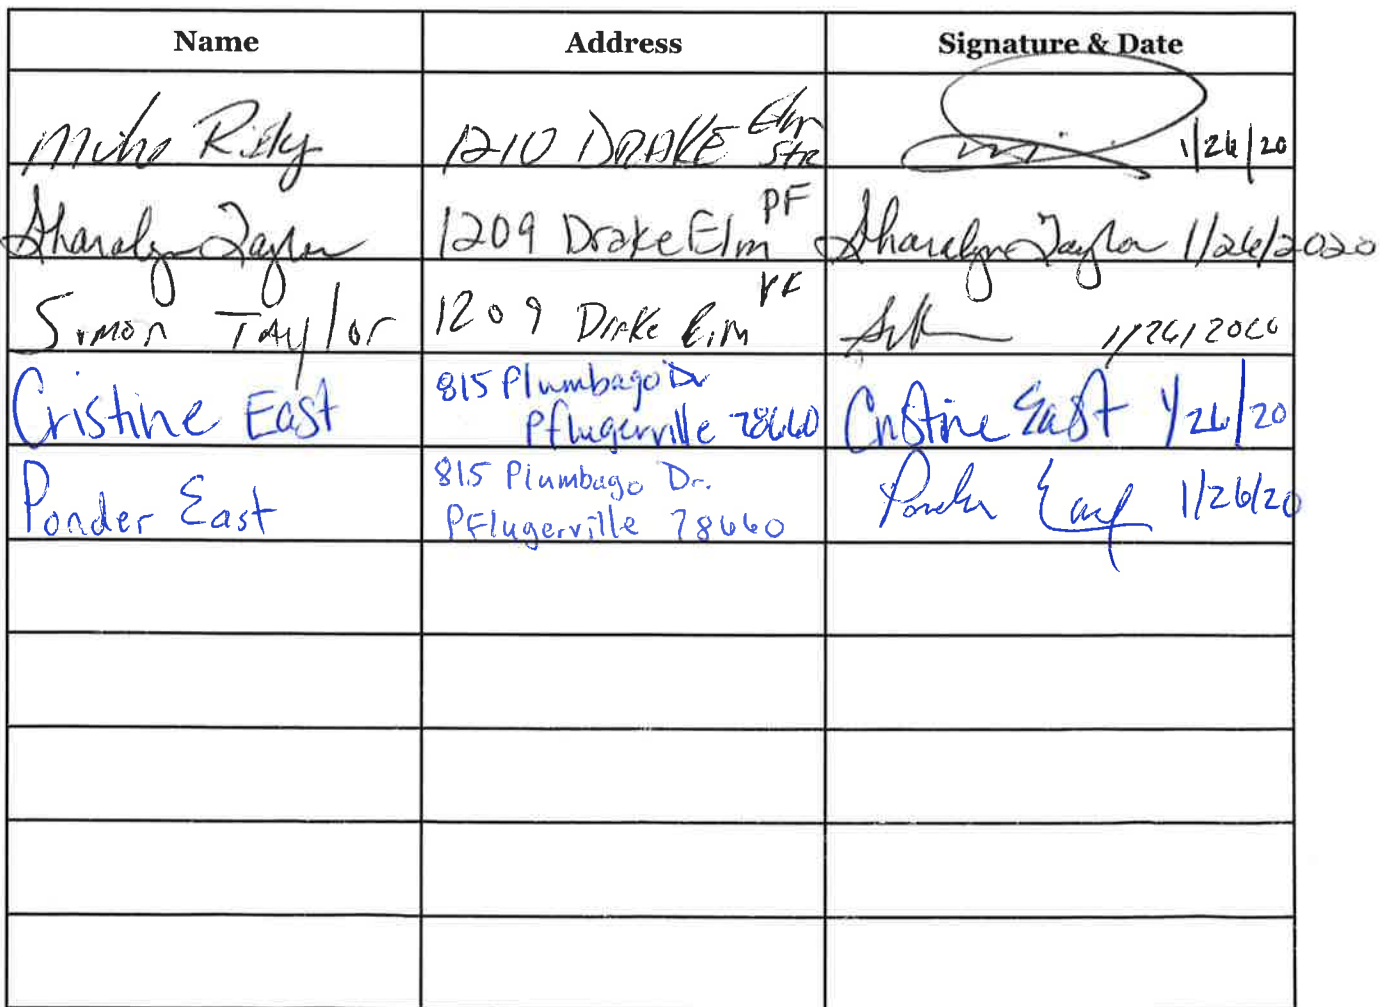 Name Address Signature & Date
1210 DRAKE Elm Str 1/26/20
Sharalyn Taylor 1209 Drake Elm PF Sharalyn Taylor 1/26/2020
Simon Taylor 1209 Drake Elm PF 1/26/2020
Cristine East 815 Plumbago Dr Pflugerville 78660 Cristine East 1/26/20
Ponder East 815 Plumbago Dr. Pflugerville 78660 Ponder East 1/26/20